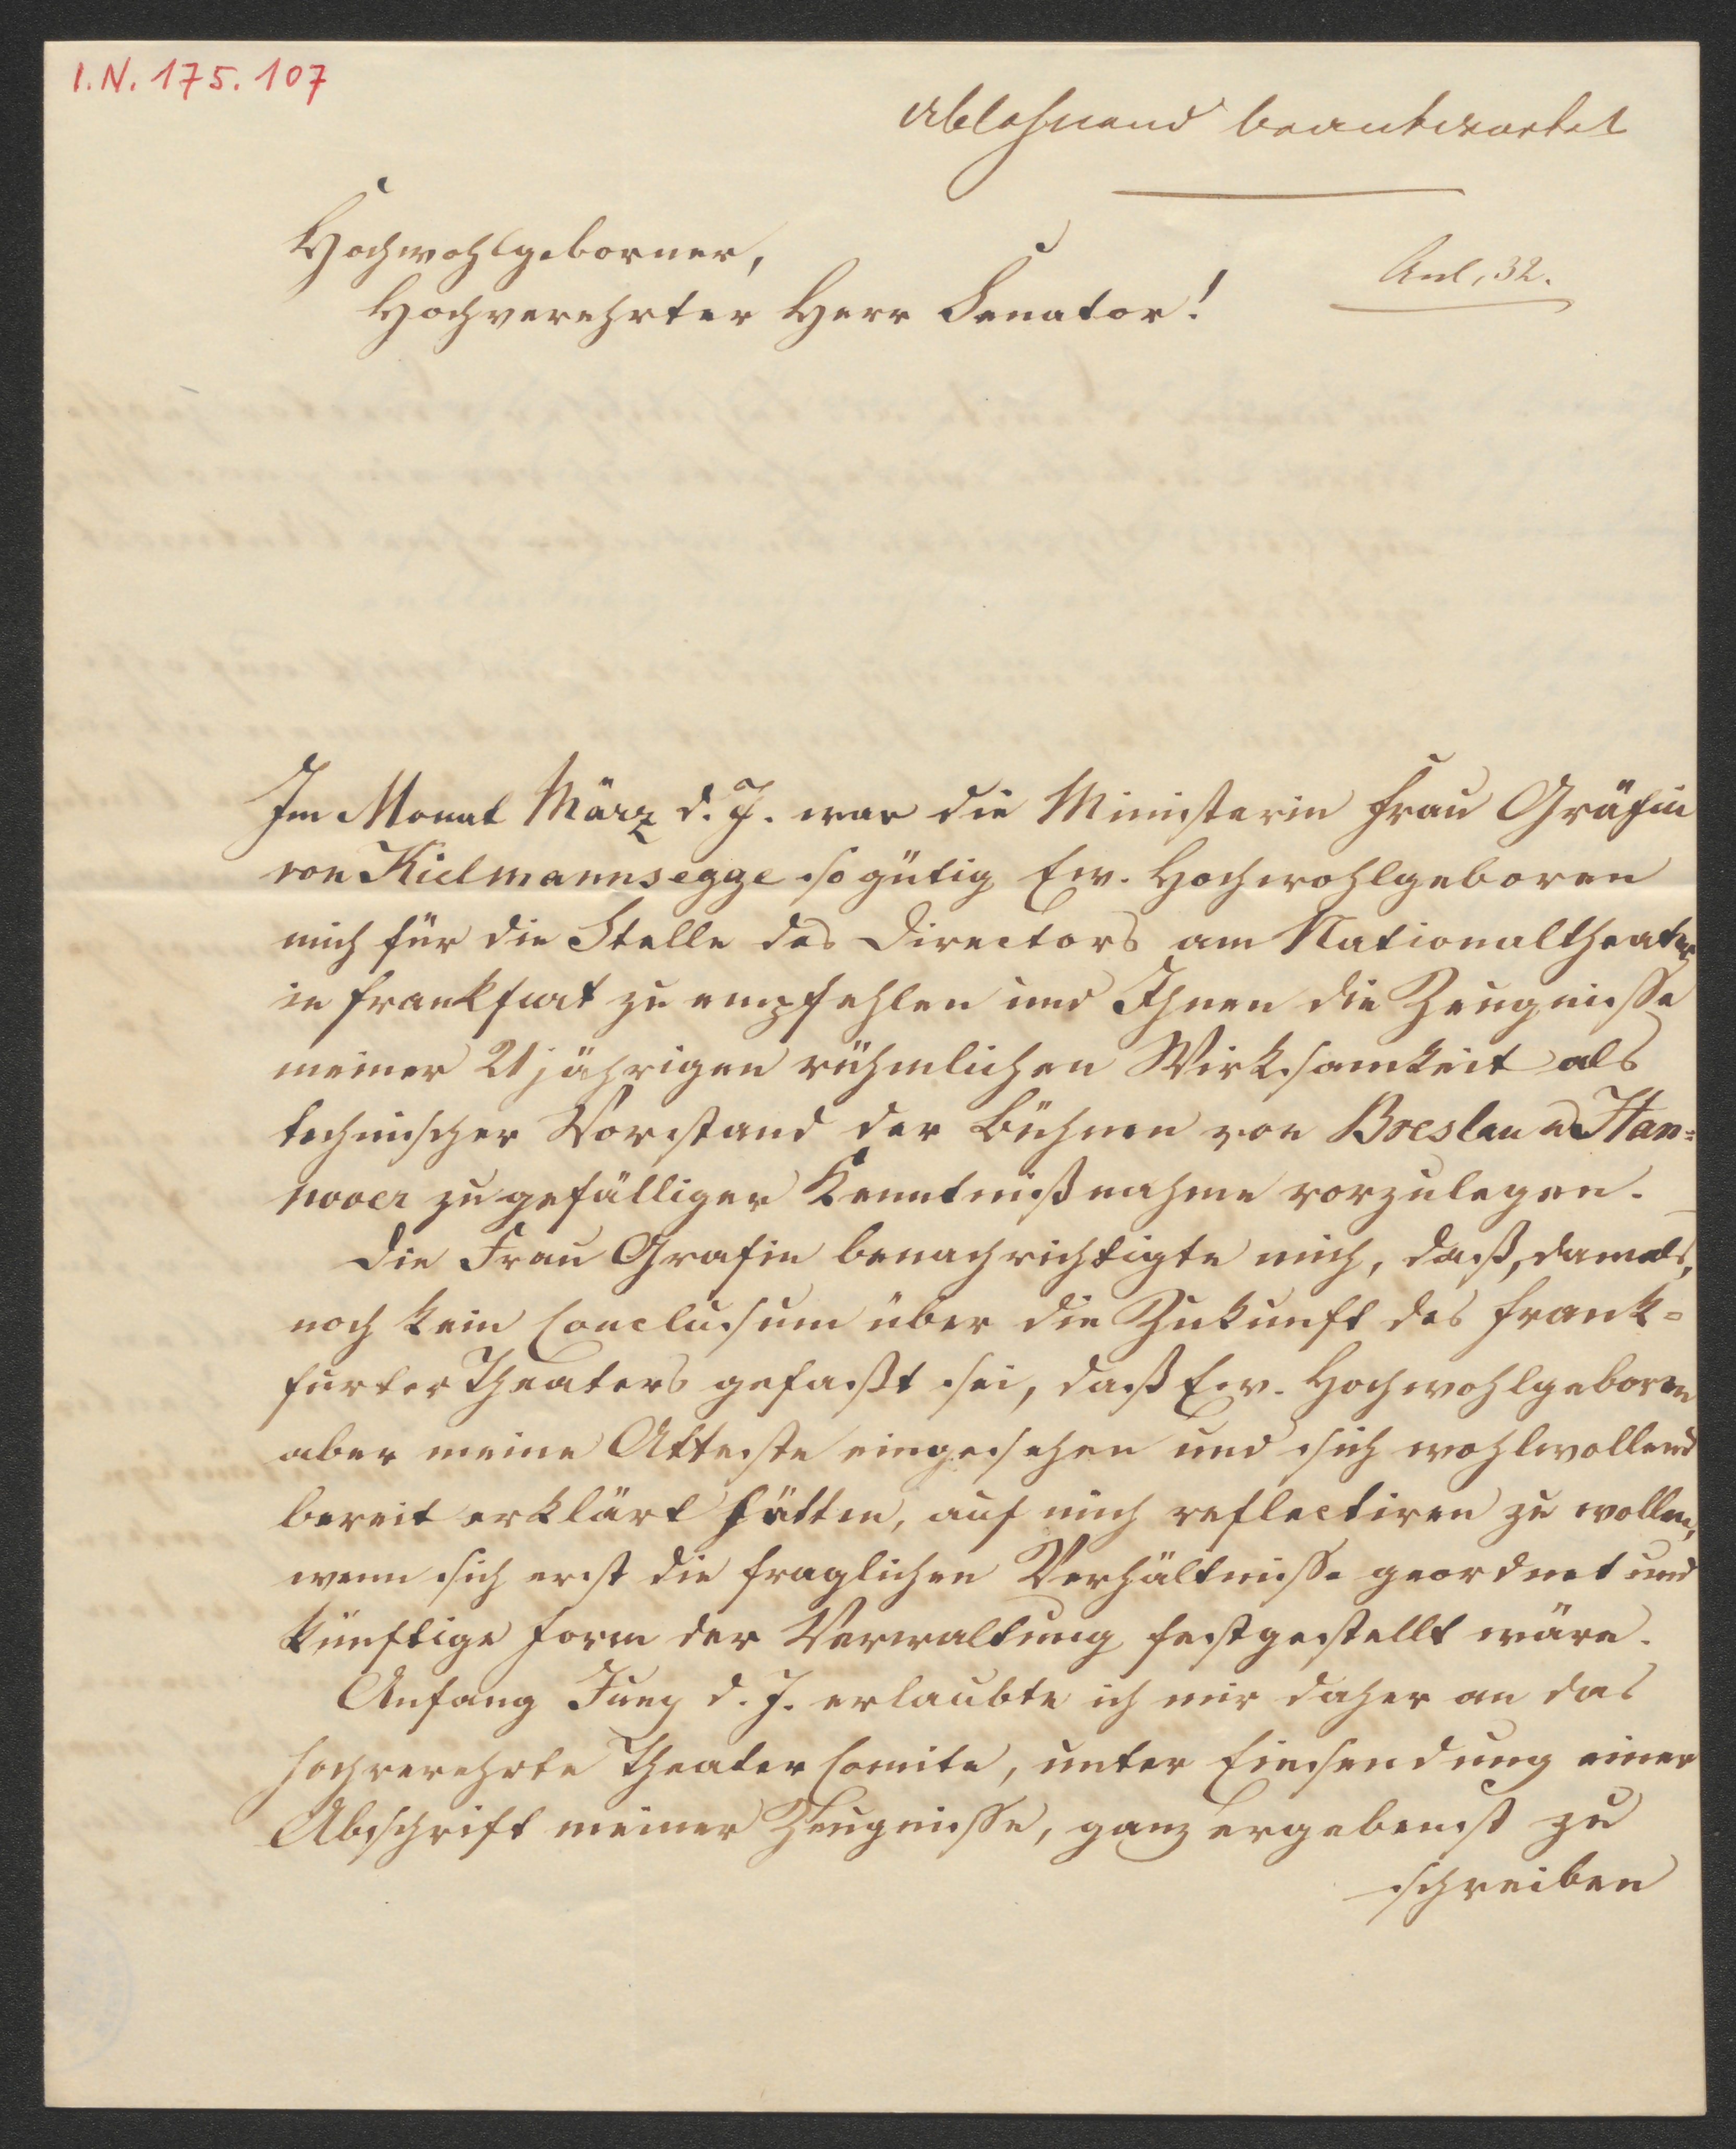 I.N. 175.107
Ablehnend beantwortet
Hochwohlgeborner,
Anl. 32.
Hochverehrter Herr Senator!
Im Monat März d. J. war die Ministerin Frau Gräfin
von Kielmannsegge so gütig Ew. Hochwohlgeboren
mich für die Stelle des Directors am Nationaltheater
in Frankfurt zu empfehlen und Ihnen die Zeugnisse
meiner 21 jährigen rühmlichen Wirksamkeit als
technischer Vorstand der Bühnen von Breslau u Han-
nover zu gefälliger Kenntnißnahme vorzulegen.
Die Frau Grafin benachrichtigte mich, daß, damals,
noch kein Conclusum über die Zukunft des Frank-
furter Theaters gefaßt sei, daß Ew. Hochwohlgeboren
aber meine Atteste eingesehen und sich wohlwollend
bereit erklärt hätten, auf mich reflectiren zu wollen,
wenn sich erst die fraglichen Verhältnisse geordnet und
künftige Form der Verwaltung festgestellt wäre.
Anfang Juny d. J. erlaubte ich mir daher an das
hochverehrte Theater Comite, unter Einsendung einer
Abschrift meiner Zeugnisse, ganz ergebenst zu
schreiben